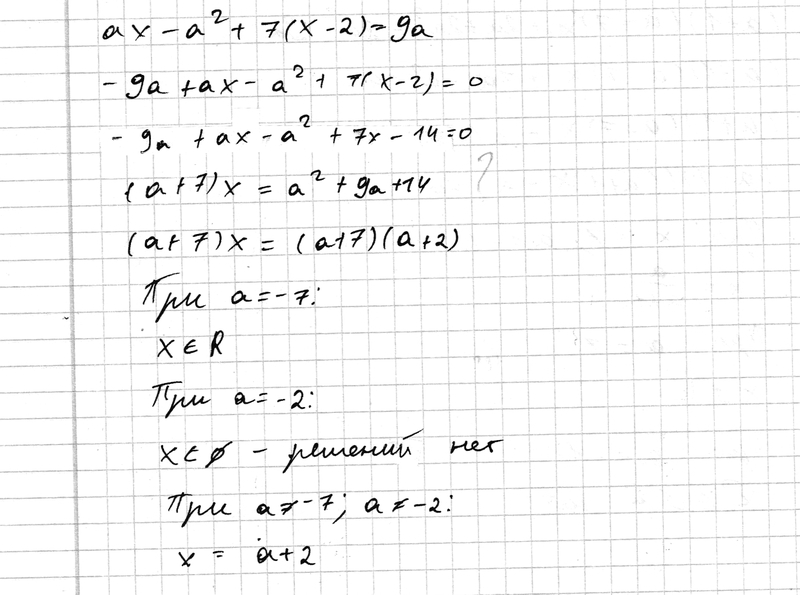 ax - a² + 7(x-2) = 9a
- 9a + ax - a² + 7(x-2) = 0
- 9a + ax - a² + 7x - 14 = 0
(a+7)x = a² + 9a + 14 ?
(a+7)x = (a+7)(a+2)
При a = -7:
x ∈ R
При a = -2:
x ∈ ∅ - решений нет
При a ≠ -7; a ≠ -2:
x = a+2